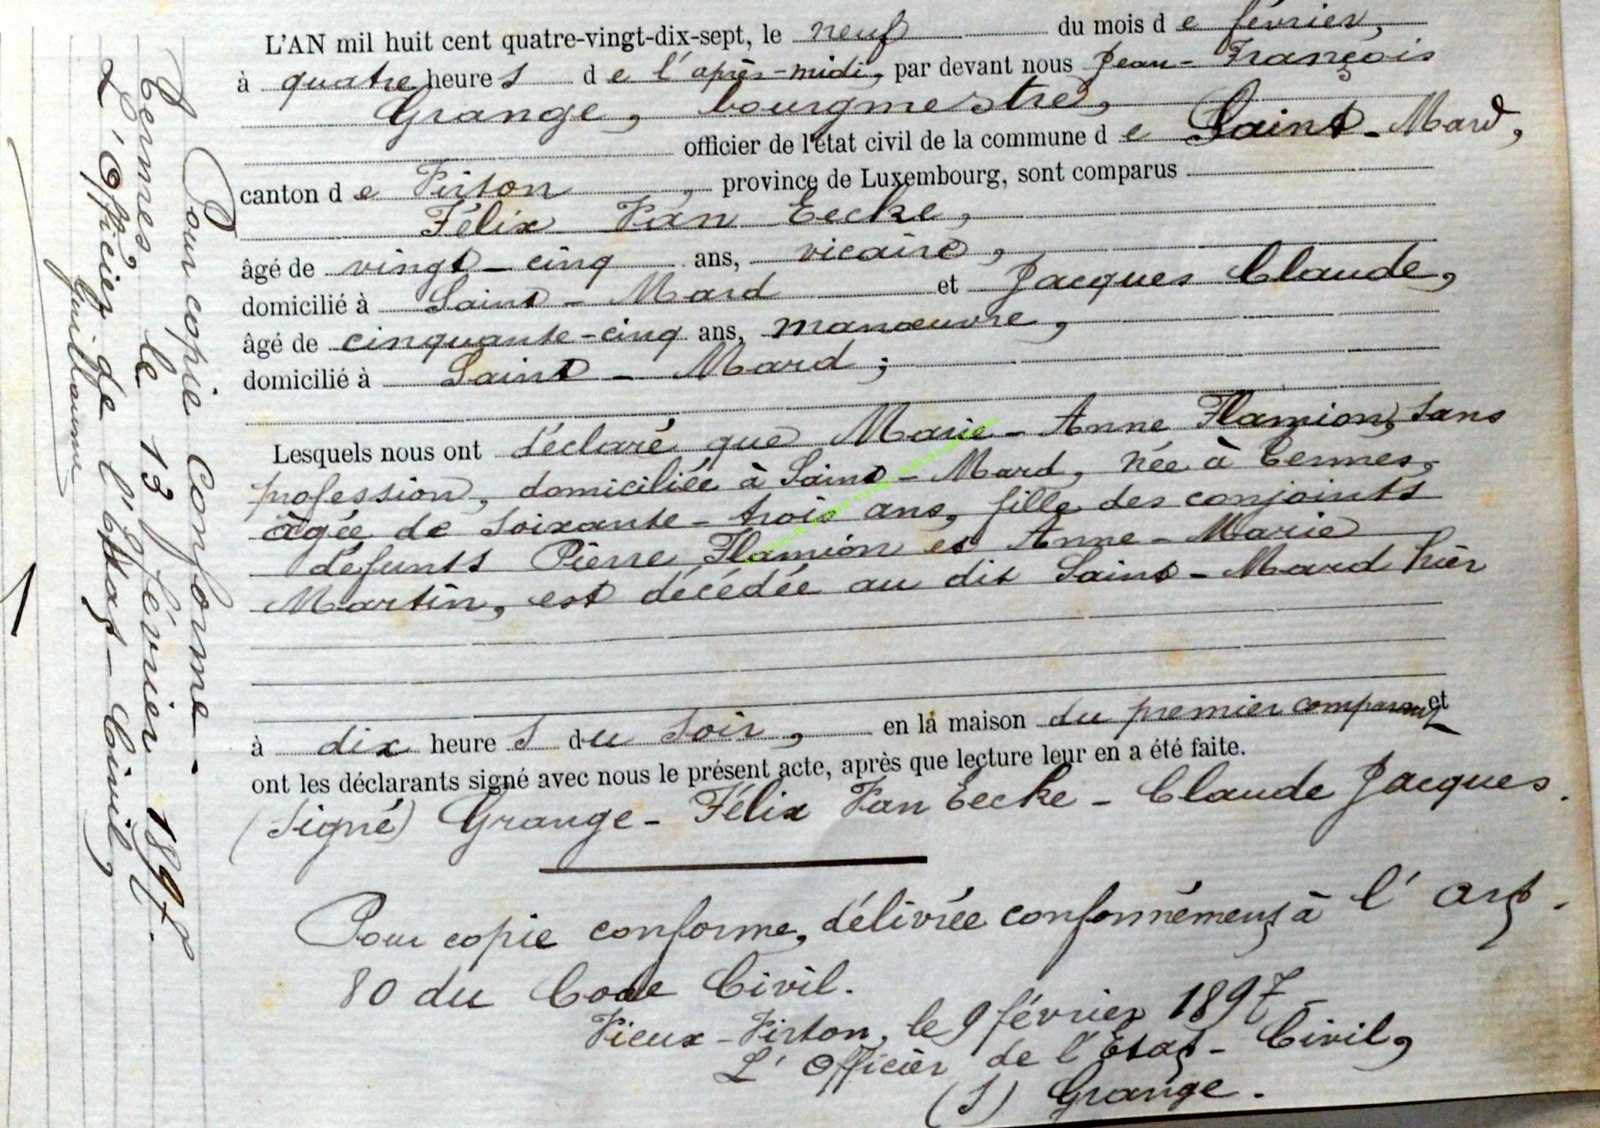 L'AN mil huit cent quatre-vingt-dix-sept, le neuf du mois d e février,
à quatre heure s d e l'après-midi, par devant nous Jean-François
Grange, bourgmestre,
officier de l'état civil de la commune d e Saint-Mard,
canton d e Virton, province de Luxembourg, sont comparus
Félix Van Eecke,
âgé de vingt-cinq ans, vicaire,
domicilié à Saint-Mard et Jacques Claude,
âgé de cinquante-cinq ans, manœuvre,
domicilié à Saint-Mard;
Lesquels nous ont déclaré que Marie-Anne Flamion, sans
profession, domiciliée à Saint-Mard, née à Termes,
âgée de soixante-trois ans, fille des conjoints
défunts Pierre Flamion et Anne-Marie
Martin, est décédée au dit Saint-Mard hier
à dix heure s du soir, en la maison du premier comparant et
ont les déclarants signé avec nous le présent acte, après que lecture leur en a été faite.
(signé) Grange - Félix Van Eecke - Claude Jacques.
Pour copie conforme, délivrée conformément à l'art.
80 du Code Civil.
Vieux-Virton, le 9 février 1897.
L'Officier de l'Etat-Civil,
(s) Grange.
Pour copie conforme
Termes, le 13 février 1897.
L'Officier de l'Etat-Civil,
Guillaume